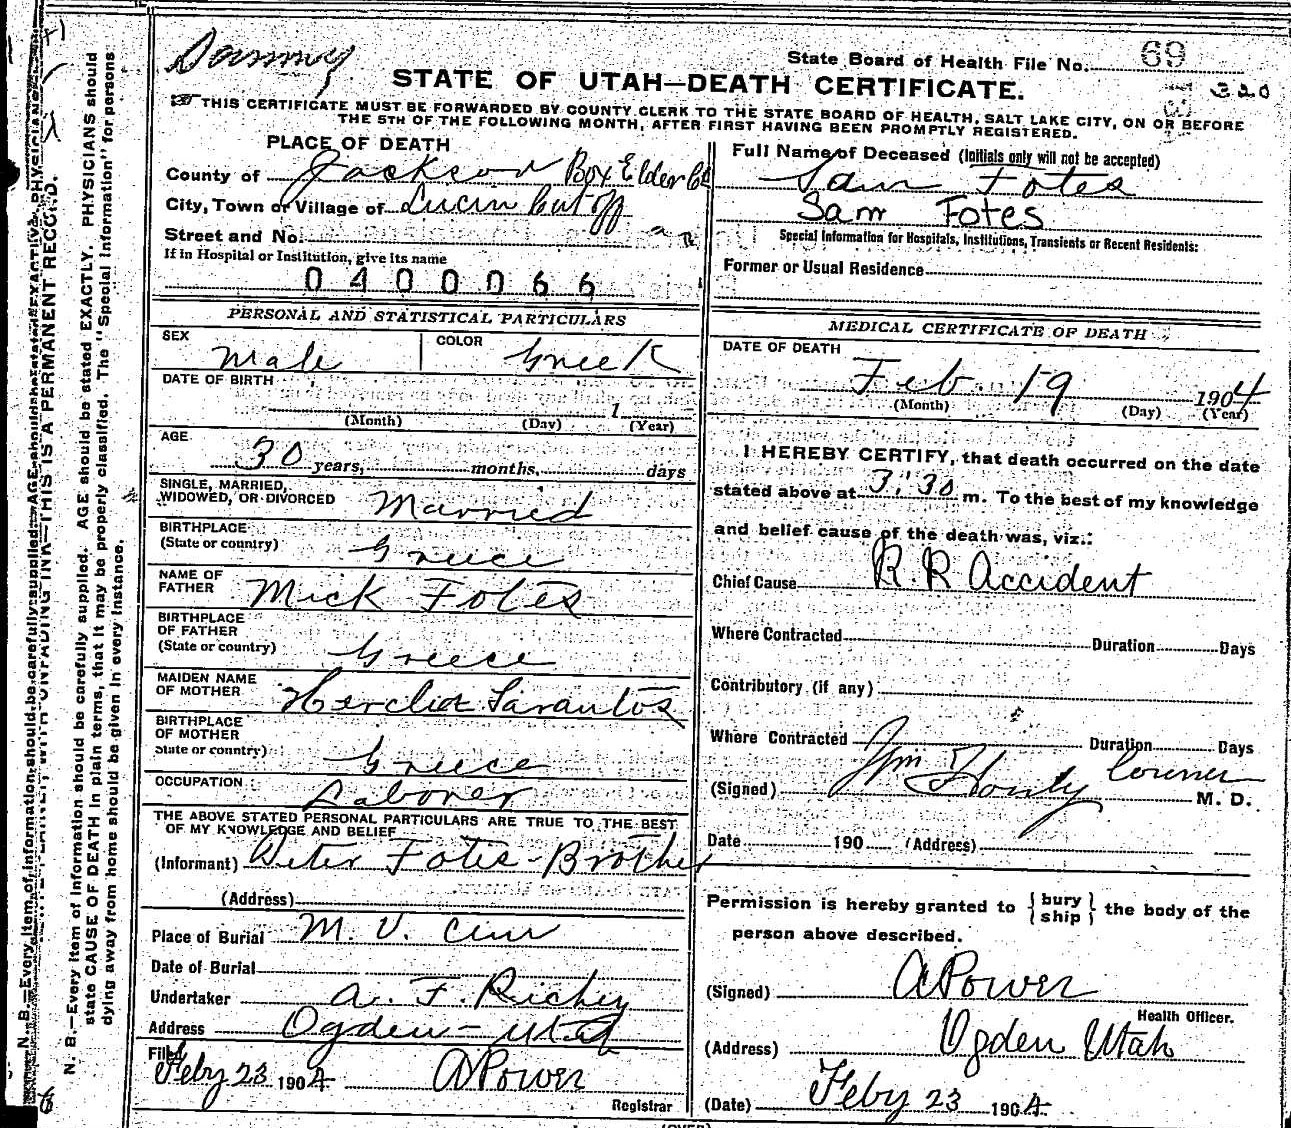 State Board of Health File No. 69
320
STATE OF UTAH—DEATH CERTIFICATE.
☞ THIS CERTIFICATE MUST BE FORWARDED BY COUNTY CLERK TO THE STATE BOARD OF HEALTH, SALT LAKE CITY, ON OR BEFORE
THE 5TH OF THE FOLLOWING MONTH, AFTER FIRST HAVING BEEN PROMPTLY REGISTERED.
PLACE OF DEATH
County of Jackson Box Elder Co
City, Town or Village of Lucin Cut off
Street and No.
If in Hospital or Institution, give its name
0400066
Full Name of Deceased (Initials only will not be accepted)
Sam Fotes
Sam Fotes
Special Information for Hospitals, Institutions, Transients or Recent Residents:
Former or Usual Residence
PERSONAL AND STATISTICAL PARTICULARS
SEX Male
COLOR Greek
DATE OF BIRTH
1
(Month) (Day) (Year)
AGE
30 years, months, days
SINGLE, MARRIED,
WIDOWED, OR DIVORCED Married
BIRTHPLACE
(State or country) Greece
NAME OF
FATHER Mick Fotes
BIRTHPLACE
OF FATHER
(State or country) Greece
MAIDEN NAME
OF MOTHER Sarantos
BIRTHPLACE
OF MOTHER
State or country) Greece
OCCUPATION Laborer
THE ABOVE STATED PERSONAL PARTICULARS ARE TRUE TO THE BEST
OF MY KNOWLEDGE AND BELIEF
(Informant) Peter Fotes - Brother
(Address)
Place of Burial M. V. Cem
Date of Burial
Undertaker A. F. Richey
Address Ogden - Utah
Filed
Feby 23 1904 A Power
Registrar
MEDICAL CERTIFICATE OF DEATH
DATE OF DEATH
Feb 19 1904
(Month) (Day) (Year)
I HEREBY CERTIFY, that death occurred on the date
stated above at 3:30 m. To the best of my knowledge
and belief cause of the death was, viz.:
Chief Cause R. R Accident
Where Contracted Duration Days
Contributory (if any)
Where Contracted Duration Days
(Signed) Coroner M. D.
Date 190 (Address)
Permission is hereby granted to { bury ship } the body of the
person above described.
(Signed) A Power
Health Officer.
(Address) Ogden Utah
(Date) Feby 23 1904
(OVER)
THIS IS A PERMANENT RECORD.
N. B.—Every item of information should be carefully supplied. AGE should be stated EXACTLY. PHYSICIANS should
state CAUSE OF DEATH in plain terms, that it may be properly classified. The "Special Information" for persons
dying away from home should be given in every instance.